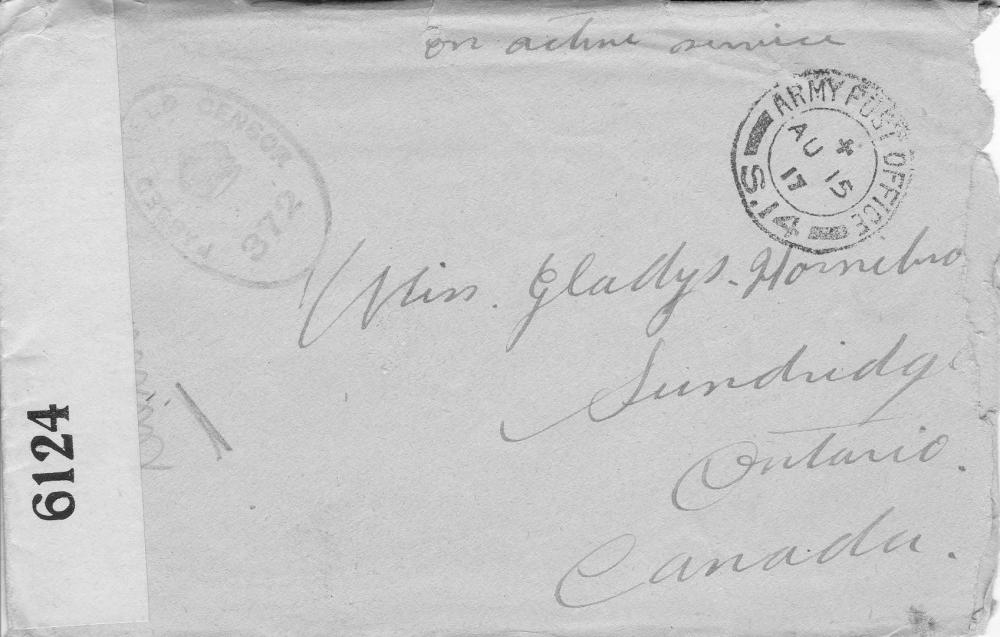 on active service
ARMY POST OFFICE
AU 15
17
S.14
PASSED FIELD CENSOR
372
Miss. Gladys. Hornebro
Sundridge
Ontario.
Canada.
6124